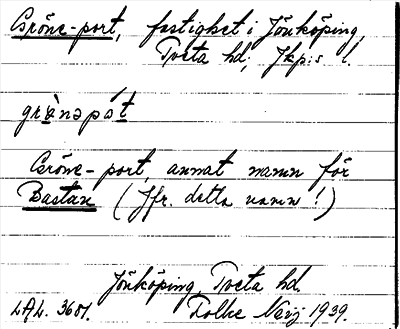 Gröne-port, fastighet i Jönköping,
Tveta hd, Jkp:s l.
grø̀nəpoṙt
Gröne-port, annat namn för
Bastan (Jfr. detta namn!)
Jönköping, Tveta hd.
LAL. 3601. Folke Neij 1939.